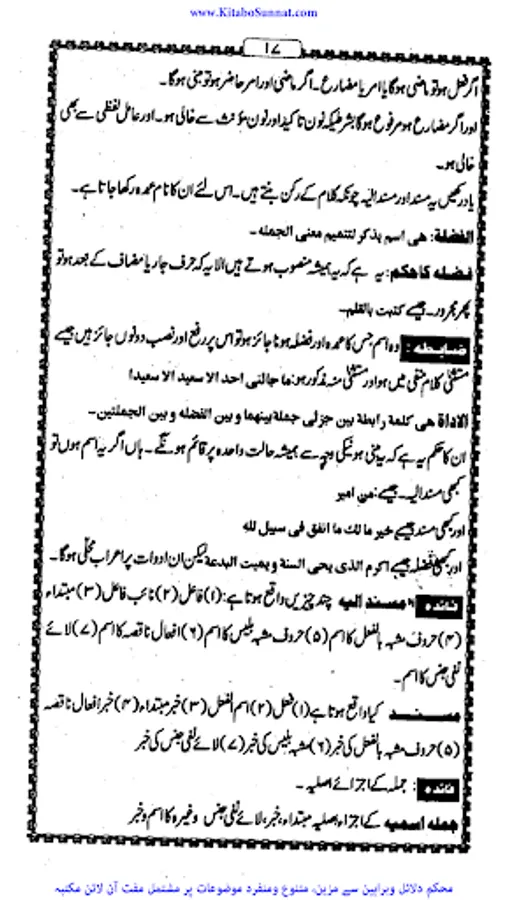 www.KitaboSunnat.com
۱۷
اگر فعل ہو تو ماضی ہوگا یا امر یا مضارع۔ اگر ماضی اور امر حاضر ہو تو مبنی ہوگا۔
اور اگر مضارع ہو مرفوع ہوگا بشرطیکہ نون تاکید اور نون مؤنث سے خالی ہو۔ اور عامل لفظی سے بھی
خالی ہو۔
یاد رکھیں یہ مسند اور مسند الیہ چونکہ کلام کے رکن بنتے ہیں۔ اس لئے ان کا نام عمدہ رکھا جاتا ہے۔
الفضلة: هی اسم یذکر لتتمیم معنی الجملہ۔
فضلہ کا حکم: یہ ہے کہ یہ ہمیشہ منصوب ہوتے ہیں الا یہ کہ حرف جار یا مضاف کے بعد ہو تو
پھر مجرور۔ جیسے کتبت بالقلم۔
ضابطہ: وہ اسم جس کا عمدہ اور فضلہ ہونا جائز ہو تو اس پر رفع اور نصب دونوں جائز ہیں جیسے
مستثنیٰ کلام منفی میں ہو اور مستثنیٰ منہ مذکور ہو: ما جائنی احد الا سعید الا سعیدا
الاداة هی کلمة رابطة بین جزئی جملة بینهما و بین الفضله و بین الجملتین۔
ان کا حکم یہ ہے کہ یہ مبنی ہونیکی وجہ سے ہمیشہ حالت واحدہ پر قائم ہونگے۔ ہاں اگر یہ اسم ہوں تو
کبھی مسند الیہ۔ جیسے: من امیر
اور کبھی مسند جیسے خیر مالک ما انفق فی سبیل للہ
اور کبھی فضلہ جیسے اکرم الذی یحی السنة و یمیت البدعة لیکن ان ادوات پر اعراب محلی ہوگا۔
فائدہ: مسند الیہ چند چیزیں واقع ہوتا ہے: (۱) فاعل (۲) نائب فاعل (۳) مبتداء
(۴) حروف مشبہ بالفعل کا اسم (۵) حروف مشبہ بلیس کا اسم (۶) افعال ناقصہ کا اسم (۷) لائے
نفی جنس کا اسم۔
مسند کیا واقع ہوتا ہے (۱) فعل (۲) اسم الفعل (۳) خبر مبتداء (۴) خبر افعال ناقصہ
(۵) حروف مشبہ بالفعل کی خبر (۶) مشبہ بلیس کی خبر (۷) لائے نفی جنس کی خبر
فائدہ: جملہ کے اجزائے اصلیہ۔
جملہ اسمیہ کے اجزاء اصلیہ مبتداء، خبر، لائے نفی جنس وغیرہ کا اسم و خبر
محکم دلائل وبراہین سے مزین، متنوع ومنفرد موضوعات پر مشتمل مفت آن لائن مکتبہ